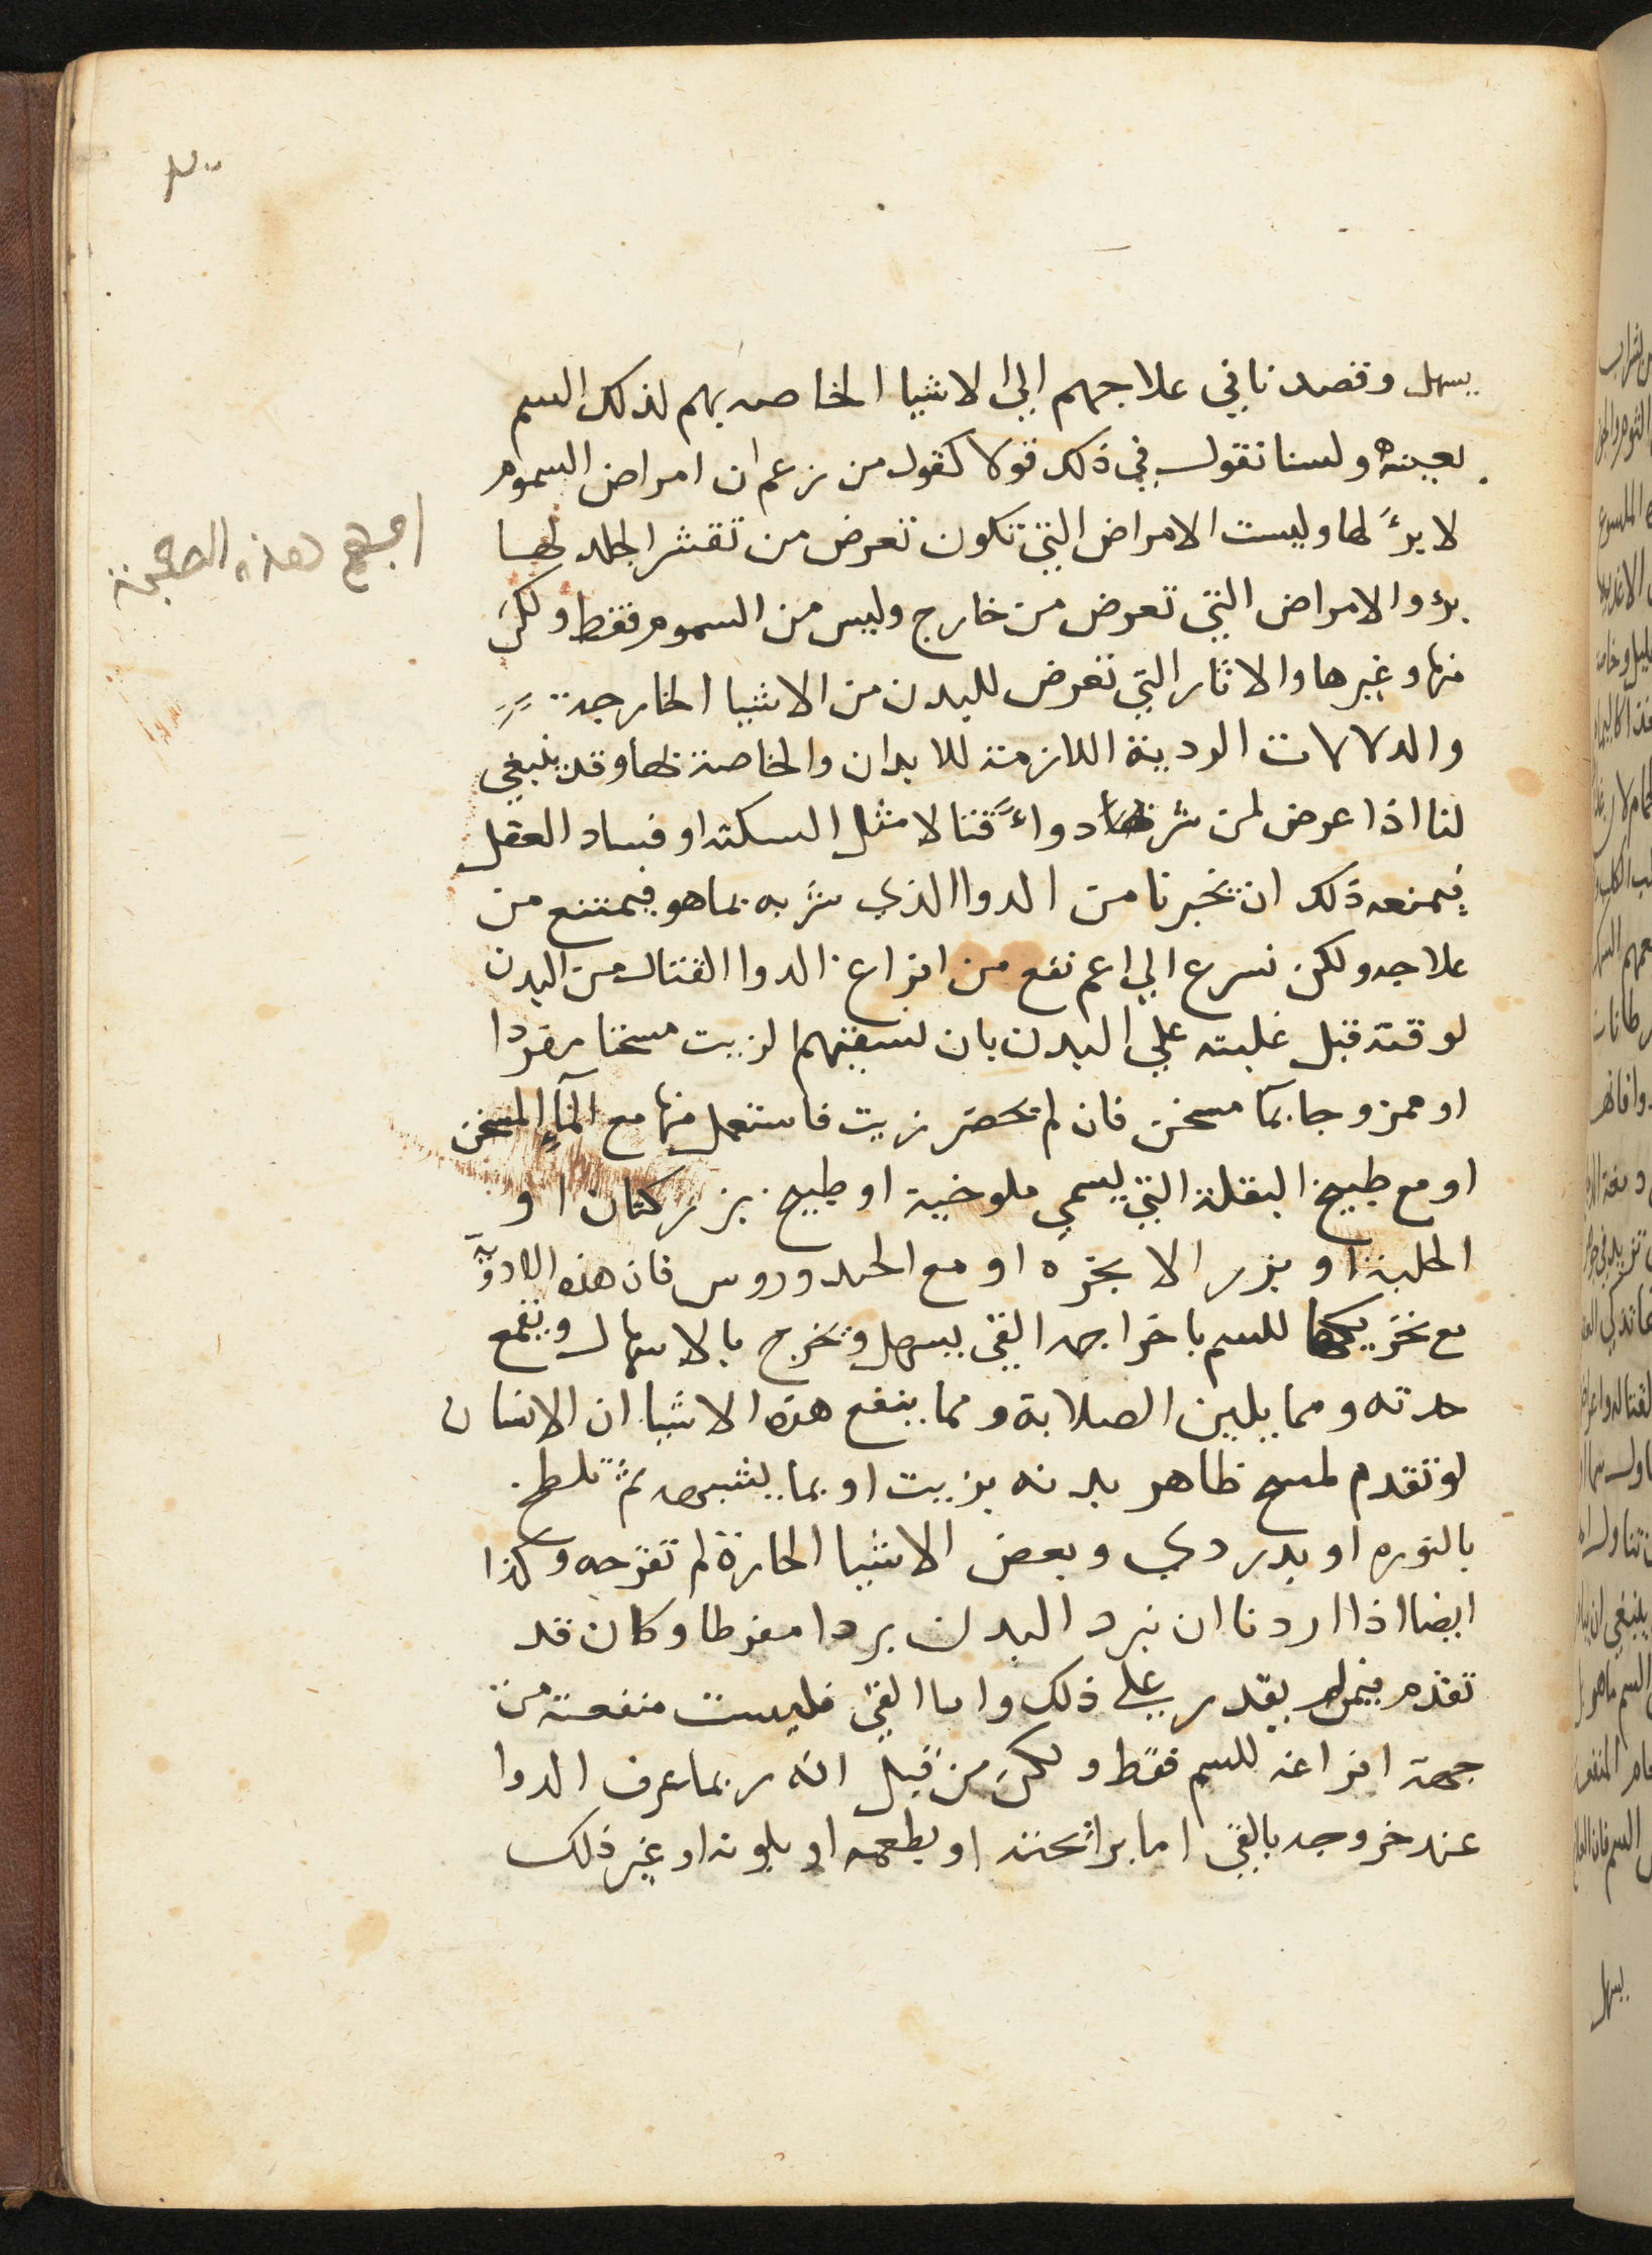 يسهل وقصدنا في علاجهم الي الاشيا الخاصه بهم لذلك السم
بعينه ولسنا نقول في ذلك قولا كقول من زعم ان امراض السموم
لا برءً لها وليست الامراض التي تكون تعرض من تقشر الجلد لها
برء والامراض التي تعرض من خارج وليس من السموم فقط ولكن
منها وغيرها والاثار التي تعرض للبدن من الاشيا الخارجة
والدلالات الردية اللازمة للابدان والخاصة لها وقد ينبغي
لنا اذا عرض لمن شربها دواءً قتالا مثل السكته او فساد العقل
فيمنعه ذلك ان تخبرنا من الدوا الذي شربه بما هو فيمتنع من
علاجه ولكن نسرع الي اعم نفع من افراغ الدوا القتال من البدن
لوقته قبل غلبته علي البدن بان نسقيهم الزيت مسخنا مفردا
او ممزوجا بمآ مسخن فان لم يحضر زيت فاستعمل منها مع المآء المسخن
او مع طبيخ البقلة التي يسمي ملوخية او طبيخ بزر كتان او
الحلبة او بزر الابخره او مع الحندروس فان هذه الادوية
مع تحريكها للسم باخراجه القي يسهل وتخرج بالاسهال ويقمع
حدته ومما يلين الصلابة ومما ينفع هذه الاشيا ان الانسان
لو تقدم لمسح ظاهر بدنه بزيت او بما يشبهه ثم تلطخ
بالنوره او بدردي وبعض الاشيا الحارة لم تقرحه وكذا
ايضا اذا اردنا ان نبرد البدن بردا مفرطا وكان قد
تقدم فيمرخ بقدر علي ذلك واما القي فليست منفعته من
جهة افراغه للسم فقط ولكن من قبل انه ربما عرف الدوا
عند خروجه بالقي اما برائحته او بطعمه او بلونه او غير ذلك
يسهل